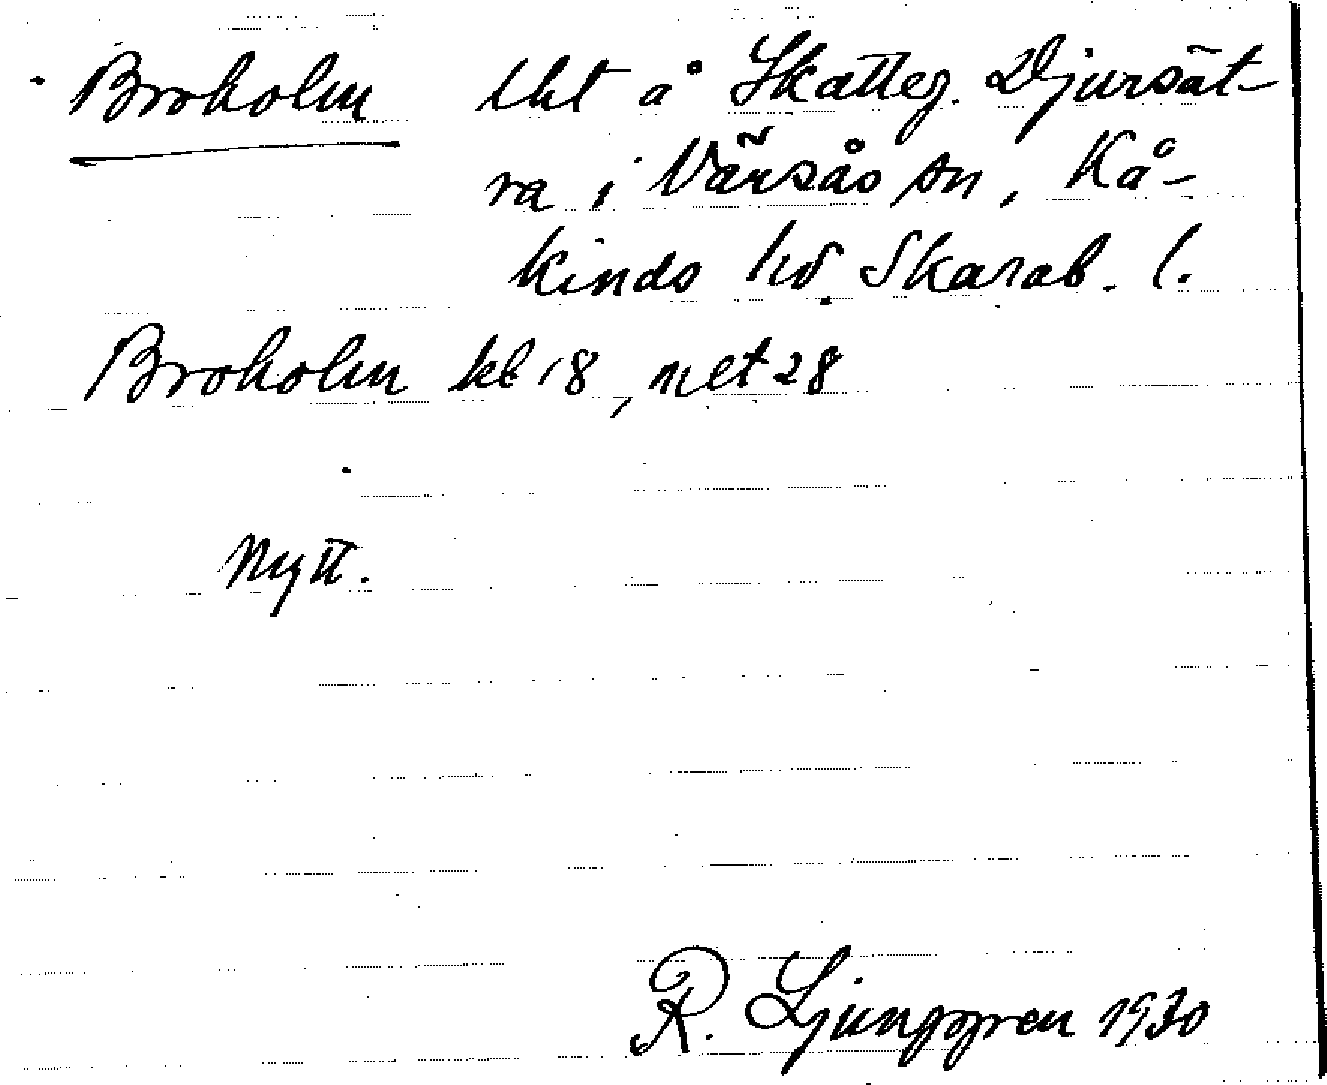 Broholm lht å Skatteg. Djursät-
ra i Värsås sn, Kå-
kinds hd. Skarab. l.
Broholm kb 18, net 28
Nytt.
R. Ljunggren 1930